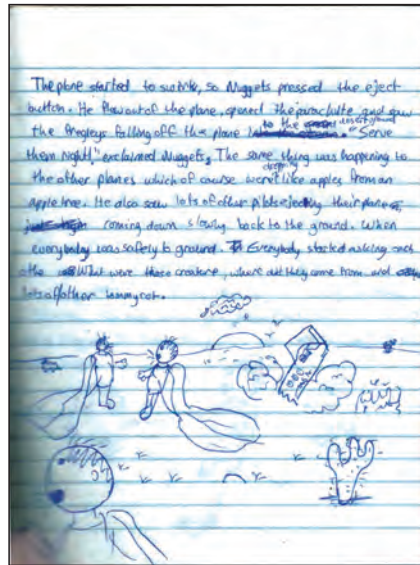 The plane started to so Nuggets pressed the eject
button. He flew out of the plane, opened the parachute and saw
the fregleys falling off the plane to the desert ground. "Serve
them right!" exclaimed Nuggets, The same thing was happening to
the other planes which of course were dropping like apples from an
apple tree. He also saw lots of other pilots ejecting their plane
coming down slowly back to the ground. When
everybody was safely to ground. Everybody started asking each
othe What were those creature, where did they come from and
lots of other